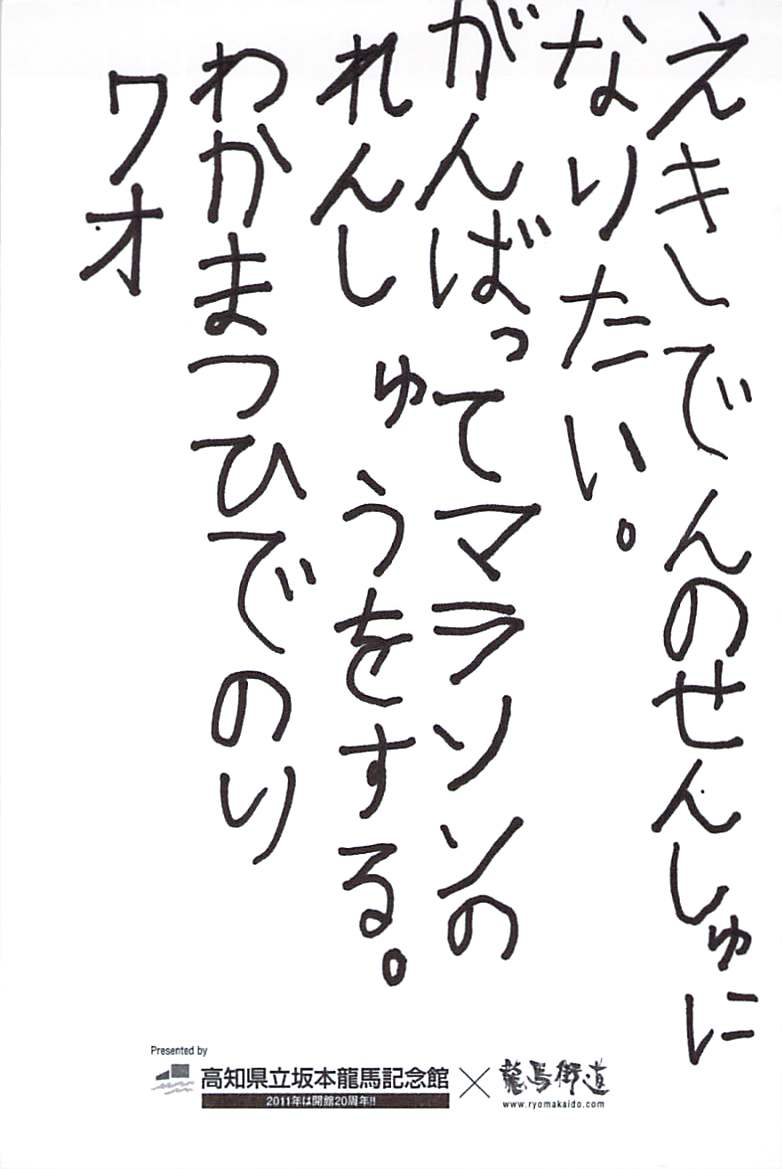 えきしでんのせんしゅに
なりたい。
がんばってマラソンの
れんしゅうをする。
わかまつひでのり
ワオ
Presented by
高知県立坂本龍馬記念館 × 龍馬街道
2011年は開館20周年!!
www.ryomakaido.com